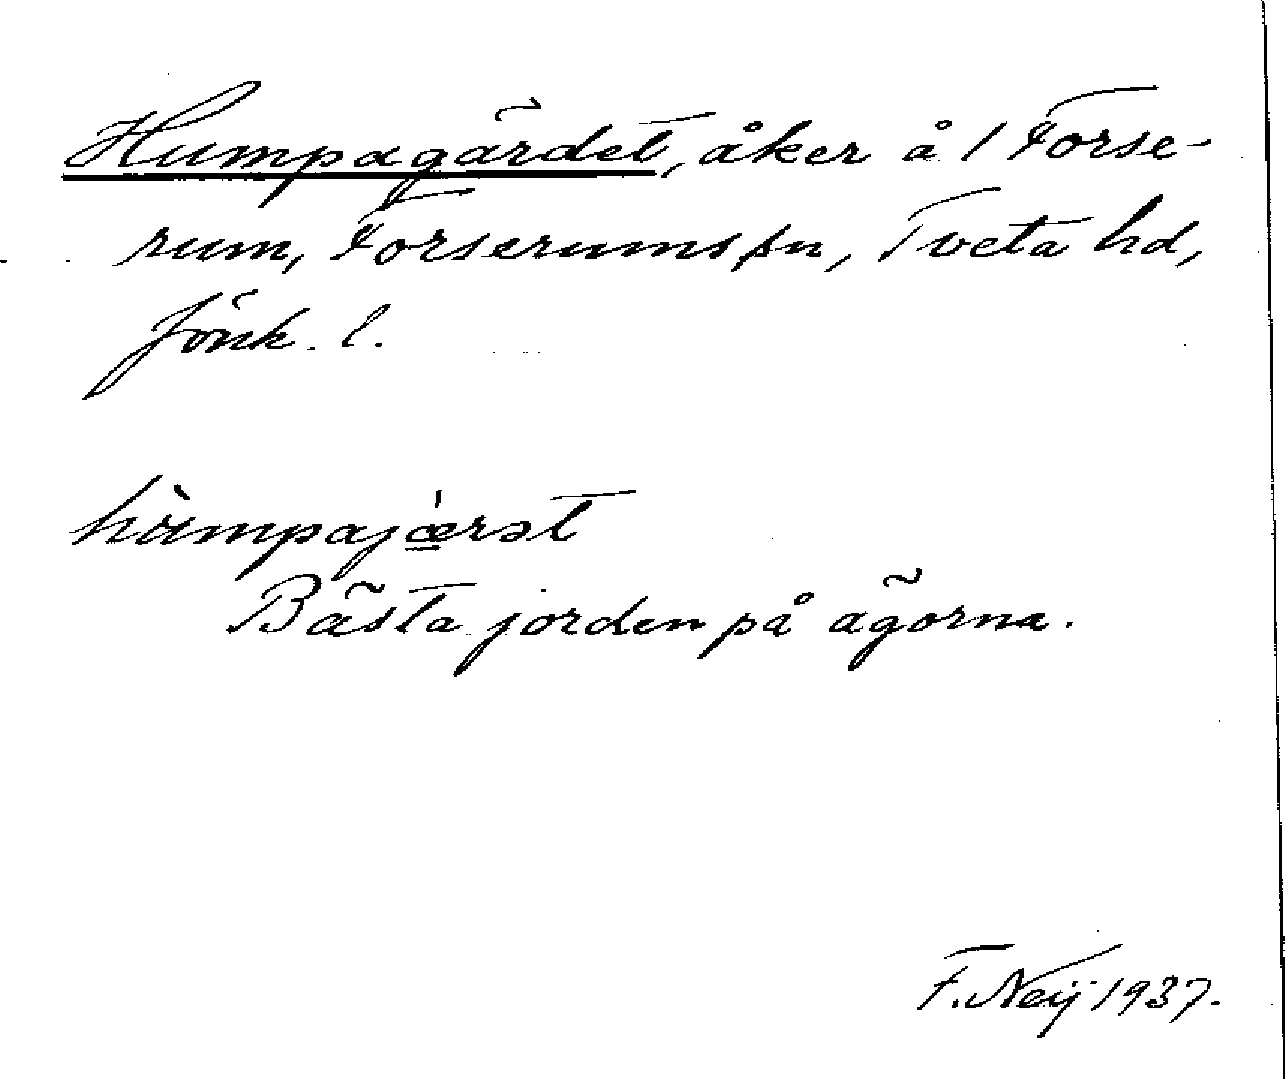 Humpagärdet, åker å 1 Forse-
rum, Forserums sn, Tveta hd,
Jönk. l.
hùmpajǽ̲rət
Bästa jorden på ägorna.
F. Neij 1937.